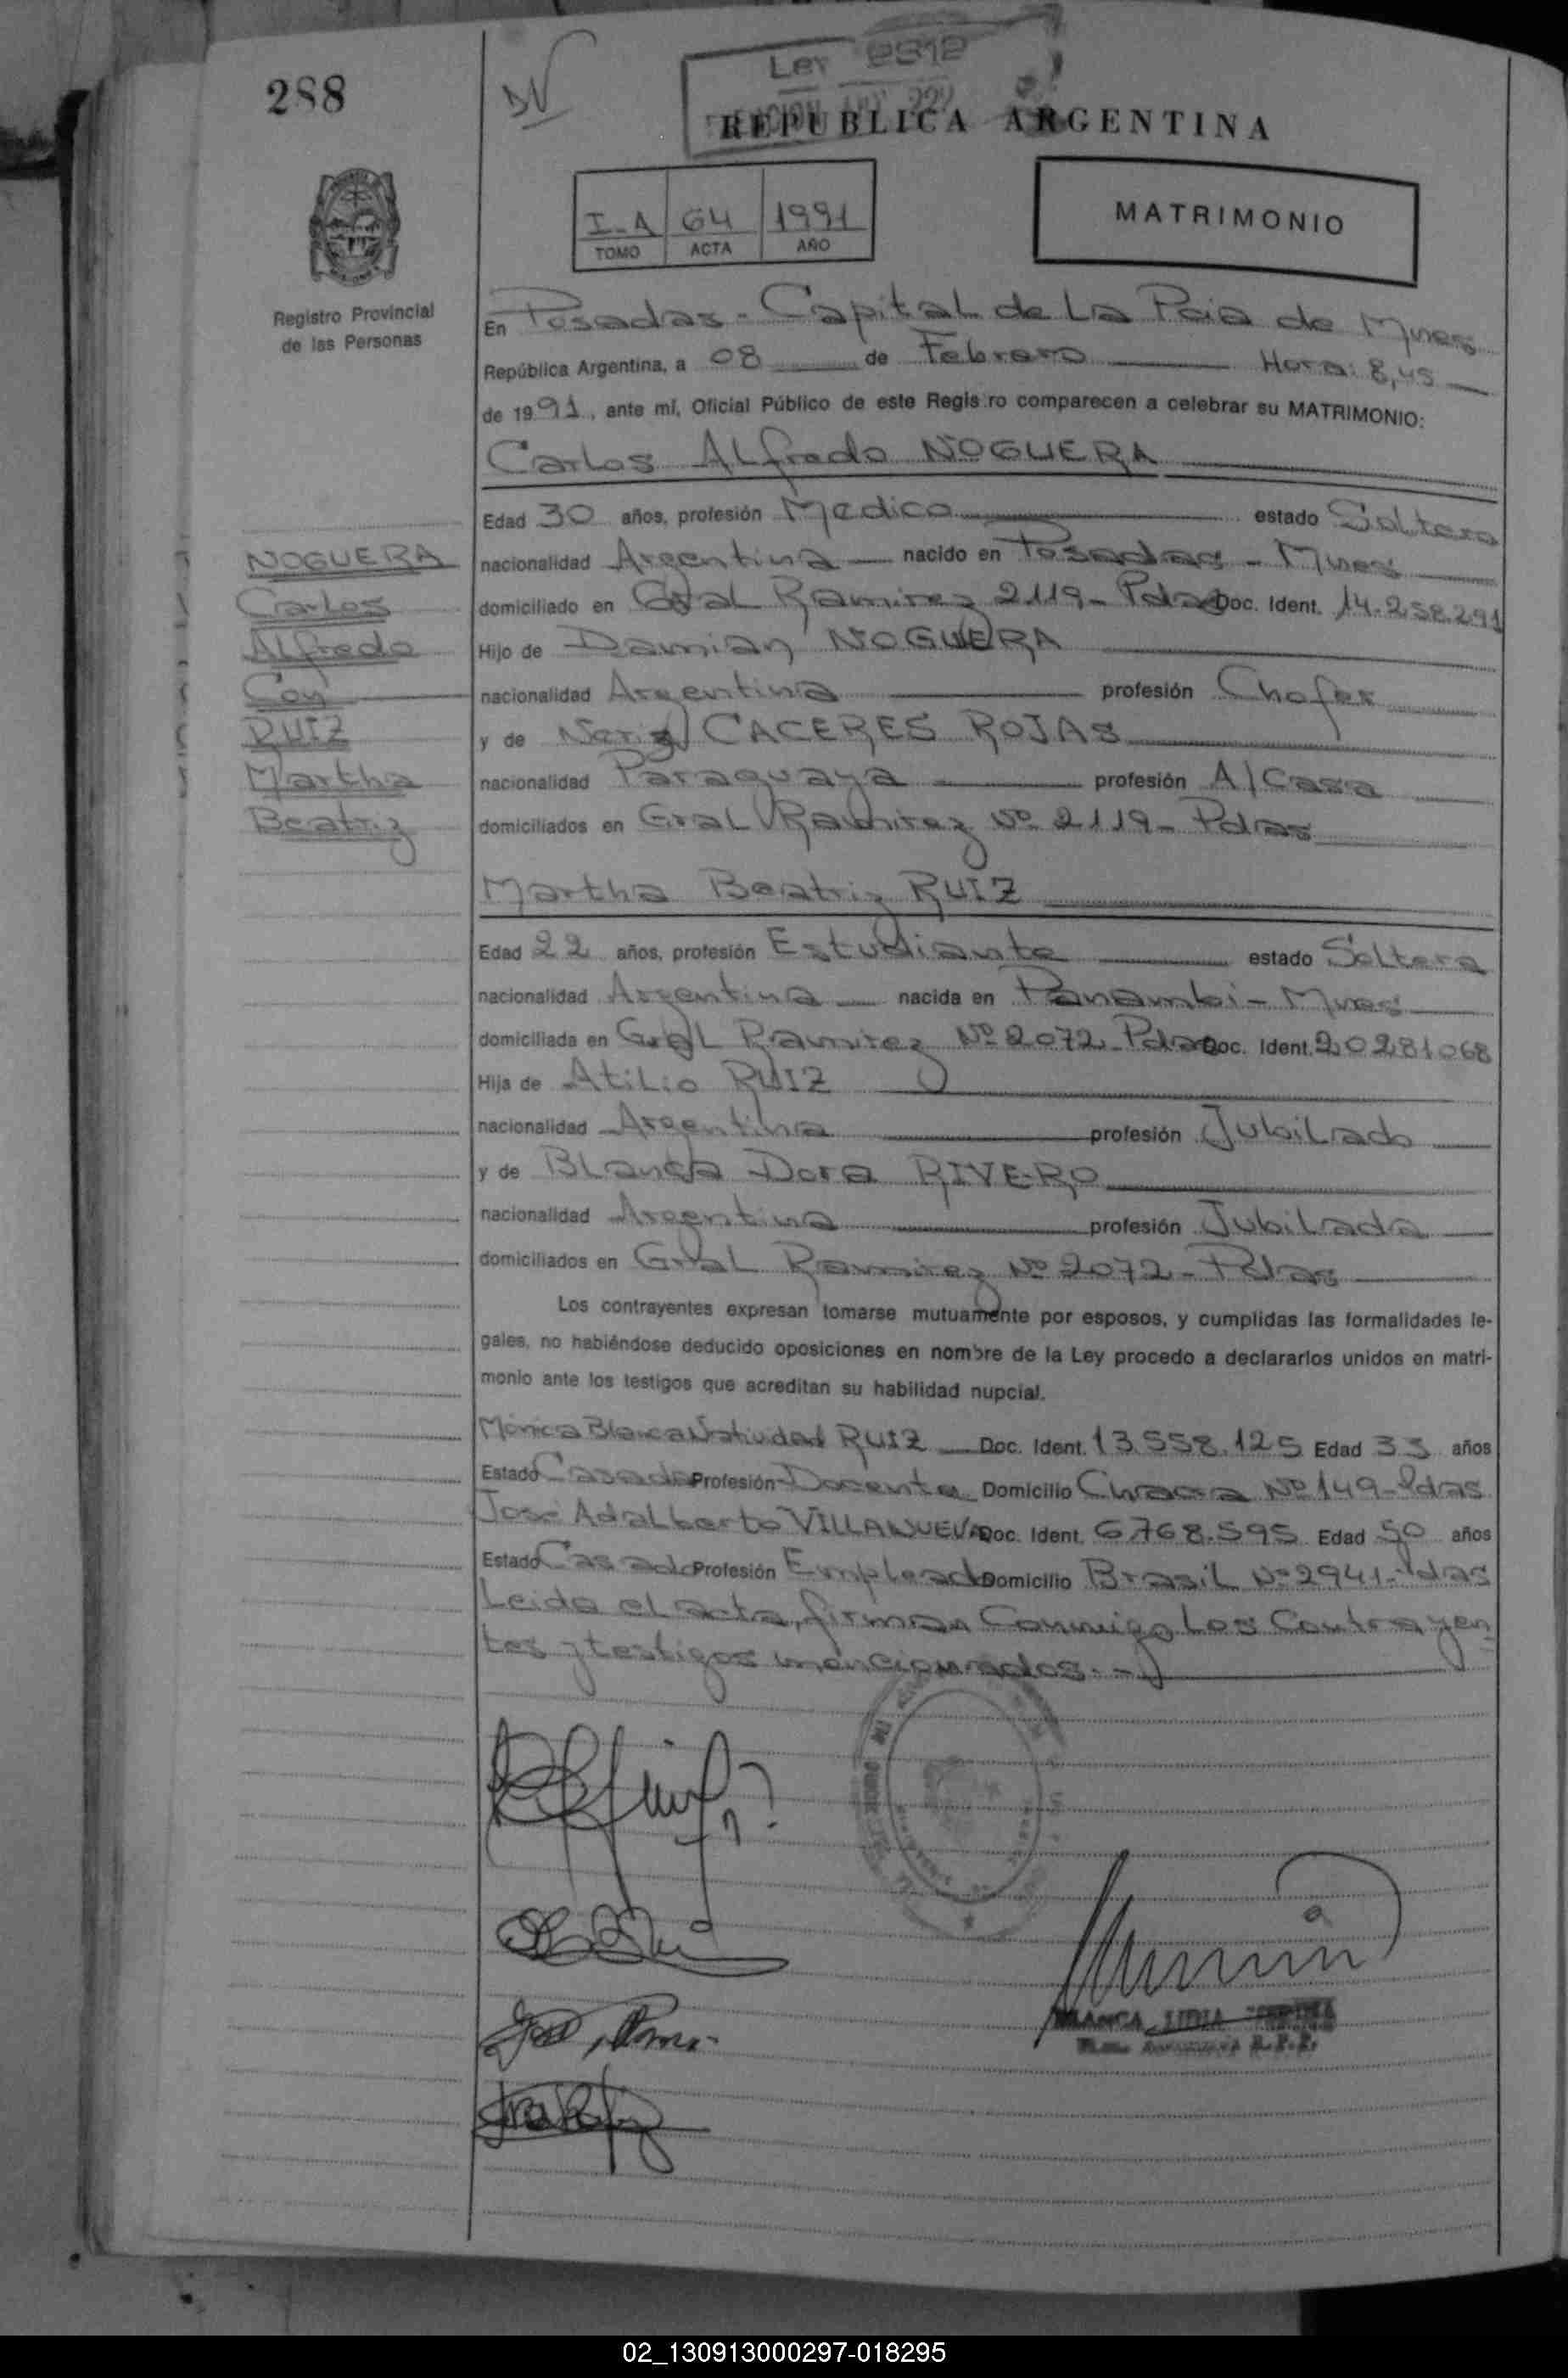 288
DV
Ley 2312
REPUBLICA ARGENTINA
I-A 64 1991
TOMO ACTA AÑO
MATRIMONIO
Registro Provincial
de las Personas
En Posadas - Capital de La Pcia de Mnes
República Argentina, a 08 de Febrero Hora: 8,45
de 1991, ante mí, Oficial Público de este Registro comparecen a celebrar su MATRIMONIO:
Carlos Alfredo NOGUERA
Edad 30 años, profesión Medico estado Soltero
nacionalidad Argentina nacido en Posadas - Mnes
domiciliado en Gral Ramirez 2119 - Pdas Doc. Ident. 14.258.291
Hijo de Damian NOGUERA
nacionalidad Argentina profesión Chofer
y de CACERES ROJAS
nacionalidad Paraguaya profesión A/Casa
domiciliados en Gral Ramirez Nº 2119 - Pdas
NOGUERA
Carlos
Alfredo
Con
RUIZ
Martha
Beatriz
Martha Beatriz RUIZ
Edad 22 años, profesión Estudiante estado Soltera
nacionalidad Argentina nacida en Panambi - Mnes
domiciliada en Gral Ramirez Nº 2072 - Pdas Doc. Ident. 20281068
Hija de Atilio RUIZ
nacionalidad Argentina profesión Jubilado
y de Blanca Dora RIVERO
nacionalidad Argentina profesión Jubilada
domiciliados en Gral Ramirez Nº 2072 - Pdas
Los contrayentes expresan tomarse mutuamente por esposos, y cumplidas las formalidades le-
gales, no habiéndose deducido oposiciones en nombre de la Ley procedo a declararlos unidos en matri-
monio ante los testigos que acreditan su habilidad nupcial.
Mónica Blanca Natividad RUIZ Doc. Ident. 13.558.125 Edad 33 años
Estado Casada Profesión Docente Domicilio Chacra Nº 149 - Pdas
Jose Adalberto VILLANUEVA Doc. Ident. 6.768.595 Edad 50 años
Estado Casado Profesión Empleado Domicilio Brasil Nº 2941 - Pdas
Leida el acta, firman Conmigo Los Contrayen
tes y testigos mencionados. -
BLANCA LIDIA
02_130913000297-018295